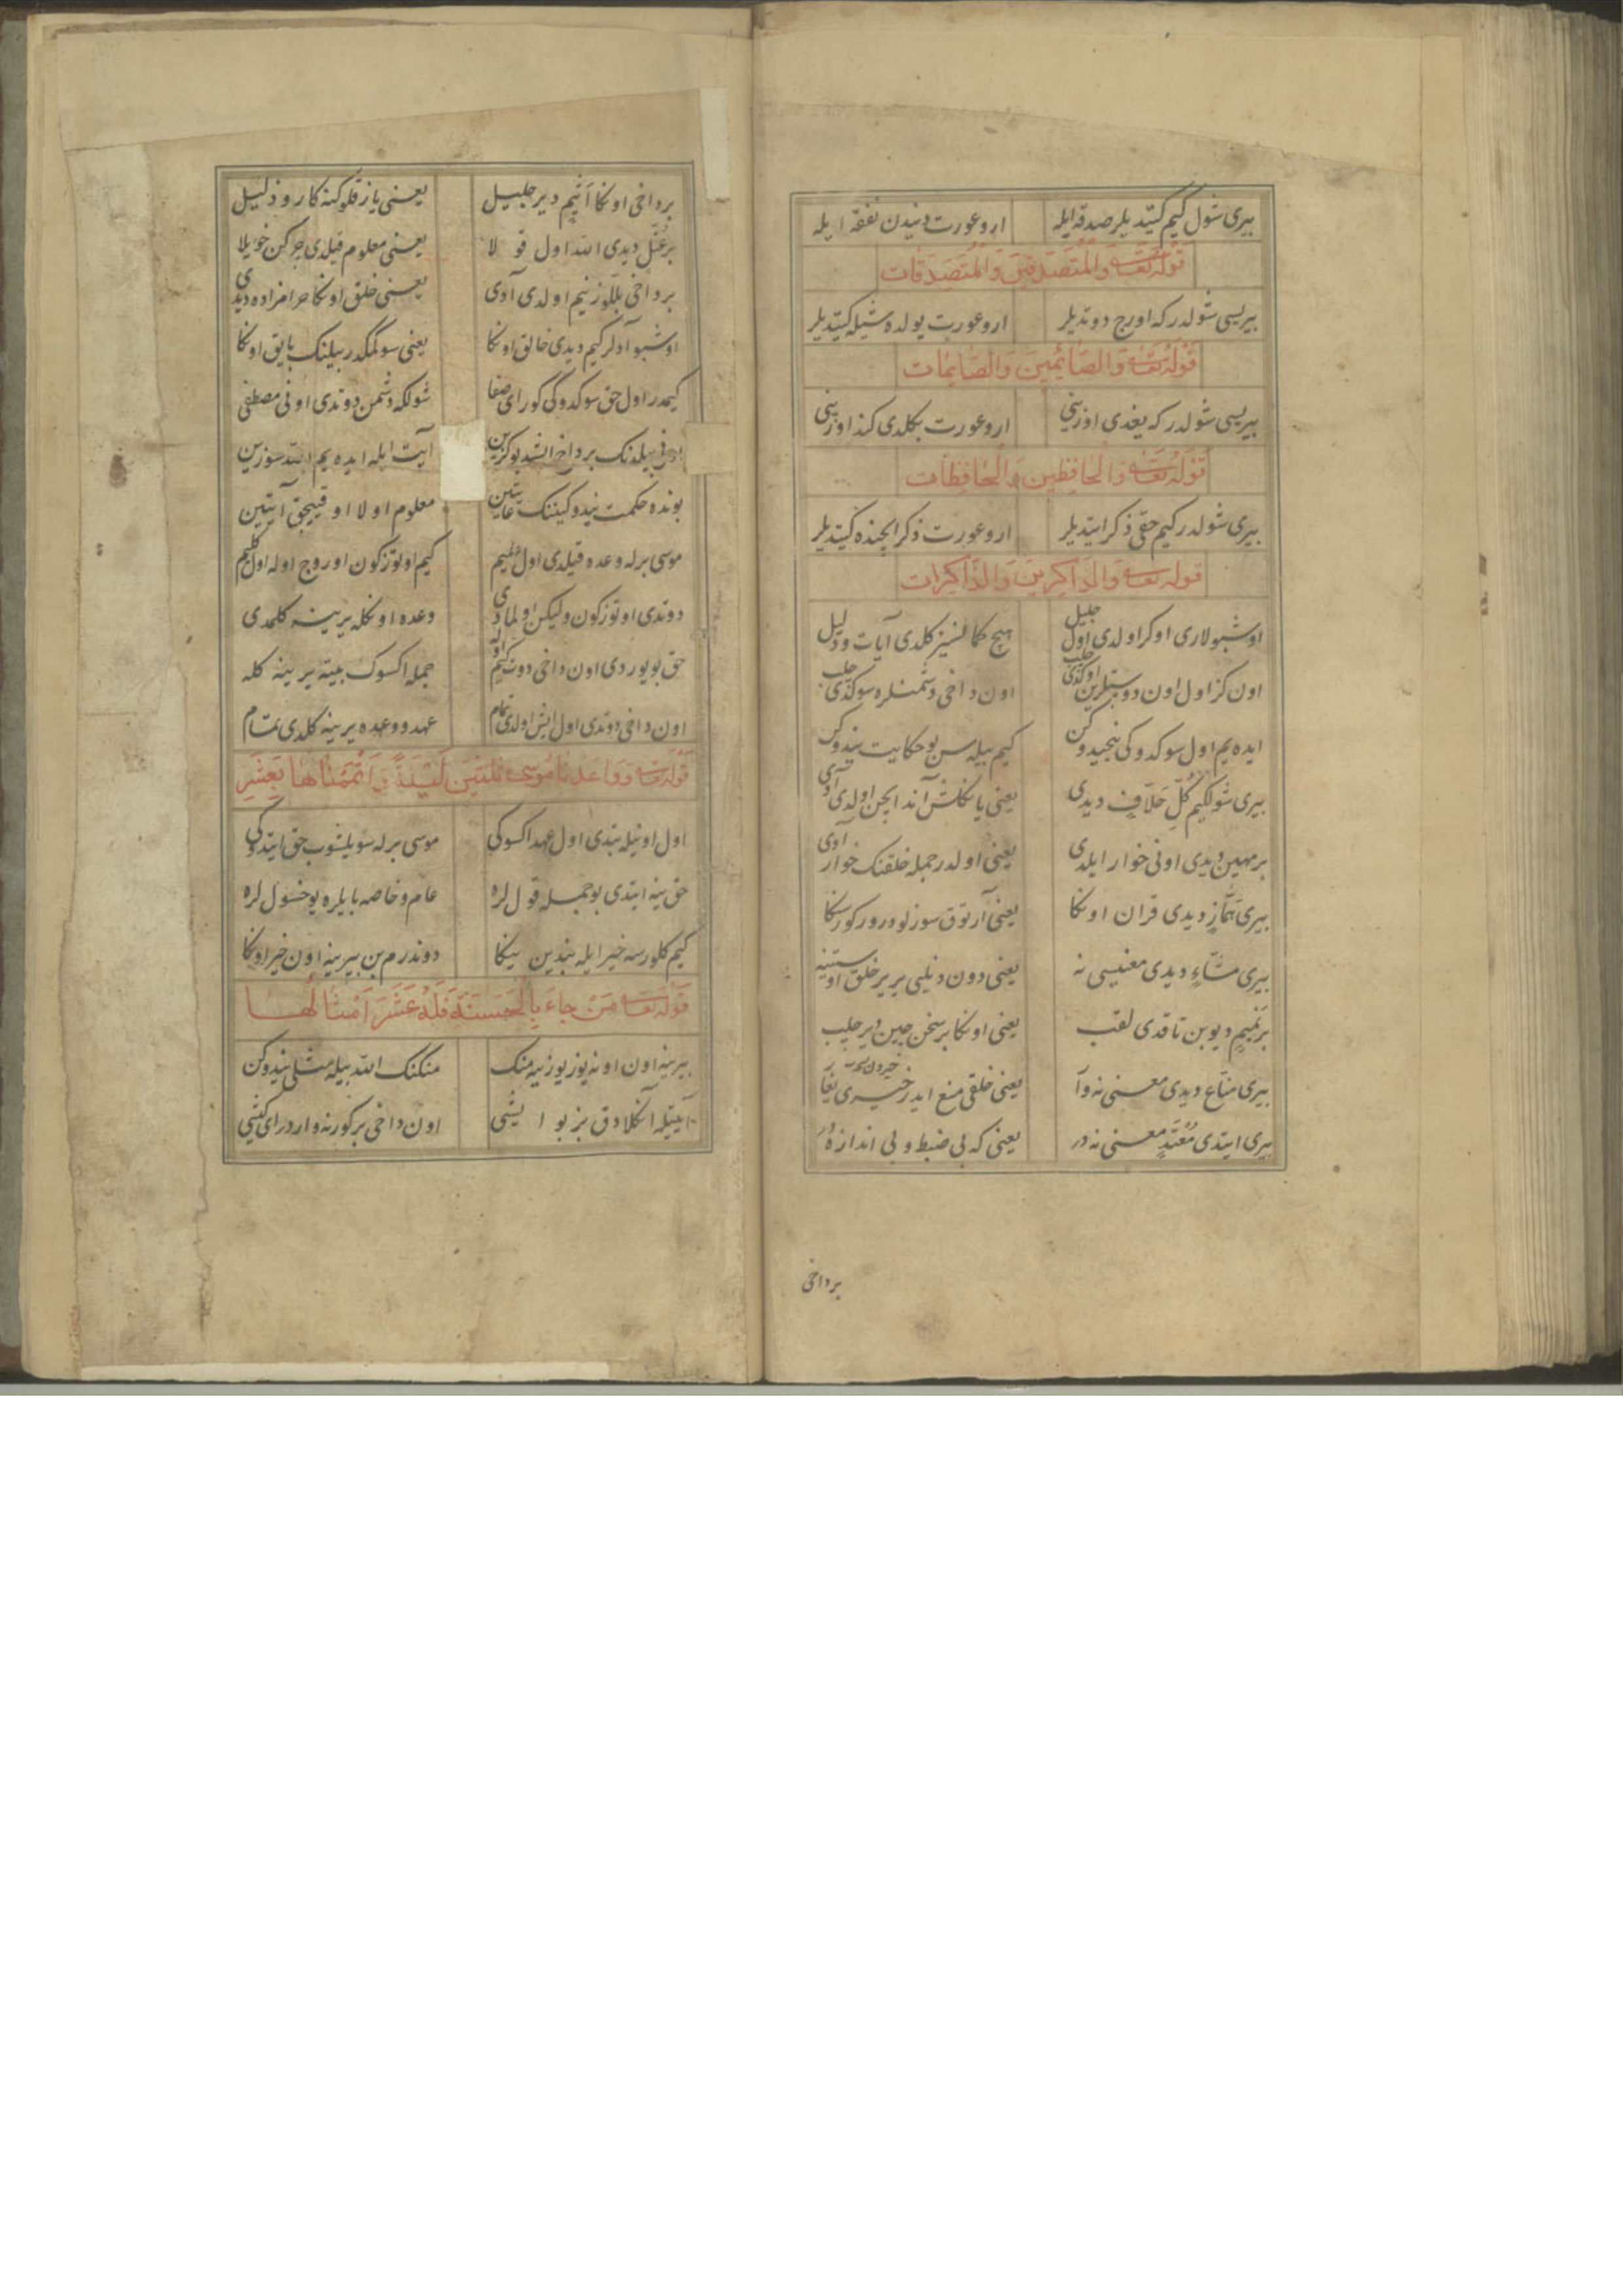 بیری شول کیم کیتدیلر صدقه ایله ارو عورت دیندن نفقه ایله
قوله تعالی والمتصدقین والمتصدقات
بیریسی شولدر که اورج دوتدیلر ارو عورت یولده شیله کیتدیلر
قوله تعالی والصائمین والصایمات
بیریسی شولدر که یغدی اوزینی ارو عورت بکلدی کند اوزینی
قوله تعالی والحافظین والحافظات
بیری شولدر کیم حقی ذکر ایتدیلر ارو عورت ذکر ایچنده کیتدیلر
قوله تعالی والذاکرین والذاکرات
اوشبولاری اوکر اولدی اول جلیل هیچ کمانسیز کلدی آیات و دلیل
اون کز اول اون دوستلرین اوکدی چلب اون داخی دشمنلره سوکدی چلب
ایده یم اول سوکدوکی نیجیدوکن کیم بیله سن بو حکایت نیدوکن
بیری شولکیم کل حلاف دیدی یعنی یاکلش آند ایچن اولدی آدی
بر مهین دیدی اونی خوار ایلدی یعنی اولدر جمله خلقنک خوار آوی
بیری هماز دیدی قران اونکا یعنی آرتوق سوزلودرور کورسکا
بیری مشاء دیدی معنیسی نه یعنی دون دنیلی یریر خلق اوستنه
بر نمیم دیوبن تاقدی لقب یعنی اونکا بر سخن چین دیر چلب
بیری مناع دیدی معنی نه وآ یعنی خلقی منع ایدر خیردن
بیری ایتدی معتد معنی نه در یعنی که بی ضبط و بی اندازه در
برداخی
برداخی اونکا اثیم دیر جلیل یعنی یازقلو کنه کار و ذلیل
بر عتل دیدی الله اول قولا یعنی معلوم قیلدی چرکن خویلا
برداخی بللوزنیم اولدی آدی یعنی خلق اونکا حرامزاده دیدی
اوشبو آدلر کیم دیدی خالق اونکا یعنی سوکمکدر بیلنک بایق اونکا
کیمدر اول حق سوکدوکی کور ای صفا شولکه دشمن دوتدی اونی مصطفی
بیلدنک برداخی اشد بو کزین آیت ایله ایده یم الله سوزین
بونده حکمت نیدوکیننک غایتین معلوم اولا اوقییجق آیتین
موسی برله وعده قیلدی اول علیم کیم اوتوز کون اوروج اوله اول کلیم
دوتدی اوتوز کون ولیکن اولمادی وعده اونکله یرینه کلمدی
حق بویوردی اون داخی دوت کیم اوله جمله اکسوک بیته یرینه کله
اون داخی دوتدی اول ایش اولدی تمام عهد و وعده یرینه کلدی تمام
قوله تعالی وواعدنا موسی ثلثین لیلة واتممناها بعشر
اول اونیله بتدی اول عهد اکسوکی موسی برله سویلشوب حق ایتدوکی
حق ینه ایتدی بو جمله قوللره عام و خاصه بایلره یوخسوللره
کیم کلورسه خیر ایله بندین ینکا دوندرم بن بیرینه اون خیر اونکا
قوله تعالی من جاء بالحسنة فله عشر امثالها
بیرینه اون اونه یوز یوزینه منک منکنک الله بیله مثلی نیدوکن
آیتیله آنکلادق بز بو ایشی اون داخی بر کور نه واردر ای کیشی